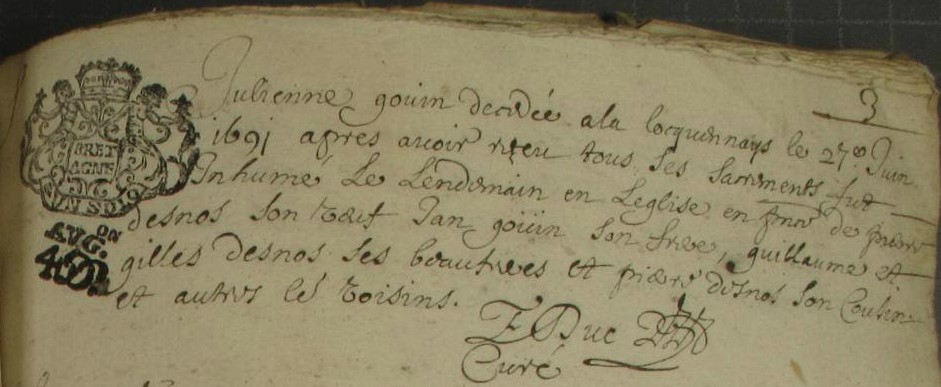 3
BRET
AGNE
UN SOL
AVG.on
Julienne goüin decedée ala locquennays le 27e Juin
1691 apres auoir receu tous ses sacrements fut
Inhumé Le Lendemain en Leglise en pnce de pierre
desnos son veuf Jan goüin son frere, guillaume et
gilles desnos ses beaufreres et pierre desnos son Cousin
et autres sés voisins.
F Duc
Curé